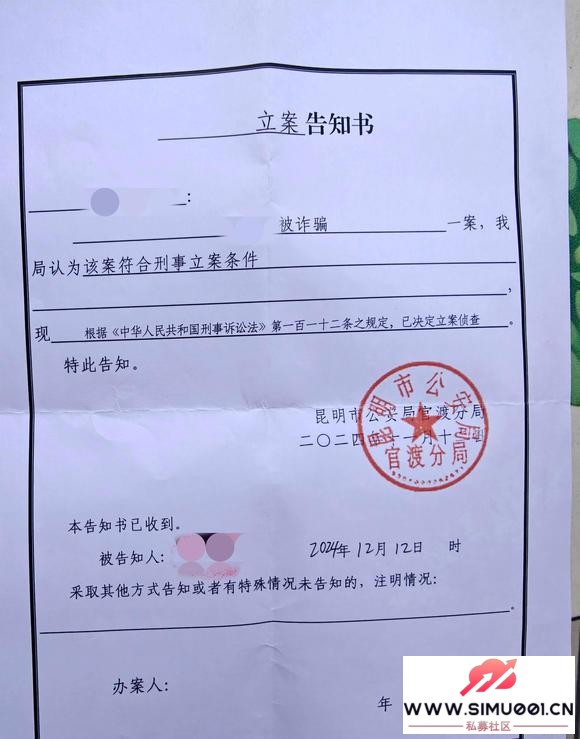 立案告知书
：
被诈骗 一案，我
局认为该案符合刑事立案条件
，
现 根据《中华人民共和国刑事诉讼法》第一百一十二条之规定，已决定立案侦查。
特此告知。
昆明市公安局官渡分局
二〇二四 十一月十
昆明市公安局
官渡分局
本告知书已收到。
被告知人： 2024年12月12日 时
采取其他方式告知或者有特殊情况未告知的，注明情况：
。
办案人：
年
WWW.SIMU001.CN
私募社区